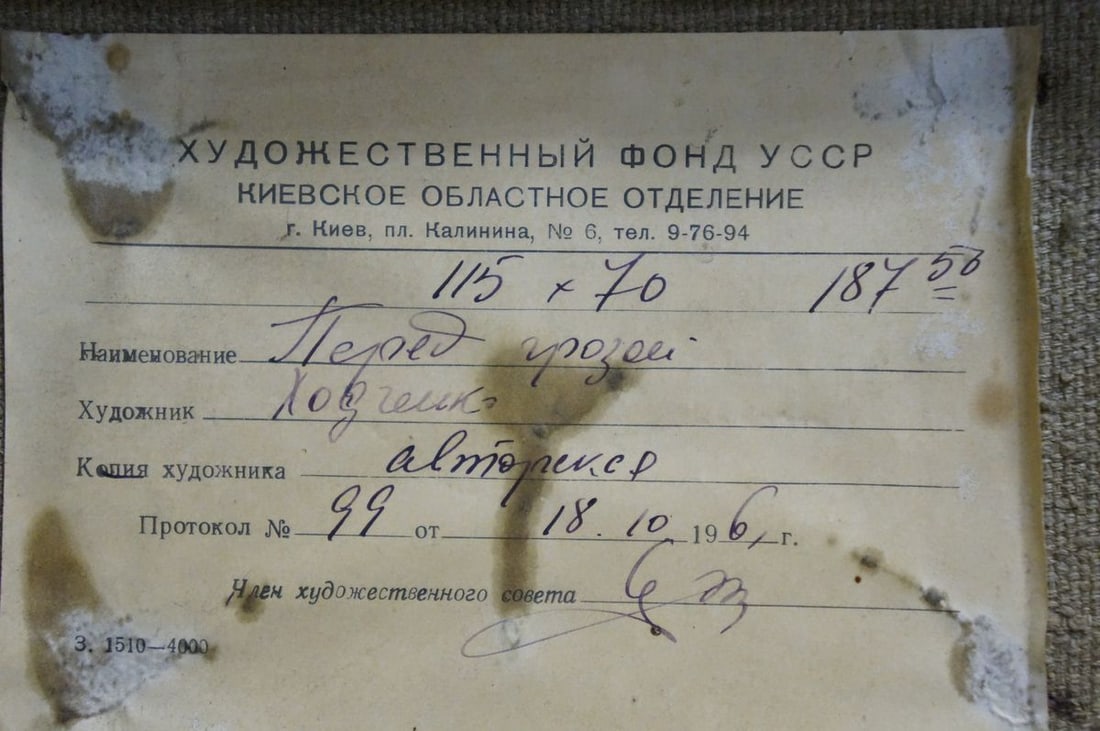 ХУДОЖЕСТВЕННЫЙ ФОНД УССР
КИЕВСКОЕ ОБЛАСТНОЕ ОТДЕЛЕНИЕ
г. Киев, пл. Калинина, № 6, тел. 9-76-94
115 x 70 187 50
Наименование Перед грозой
Художник
Копия художника авторская
Протокол № 99 от 18. 10 196 г.
Член художественного совета
З. 1510—4000